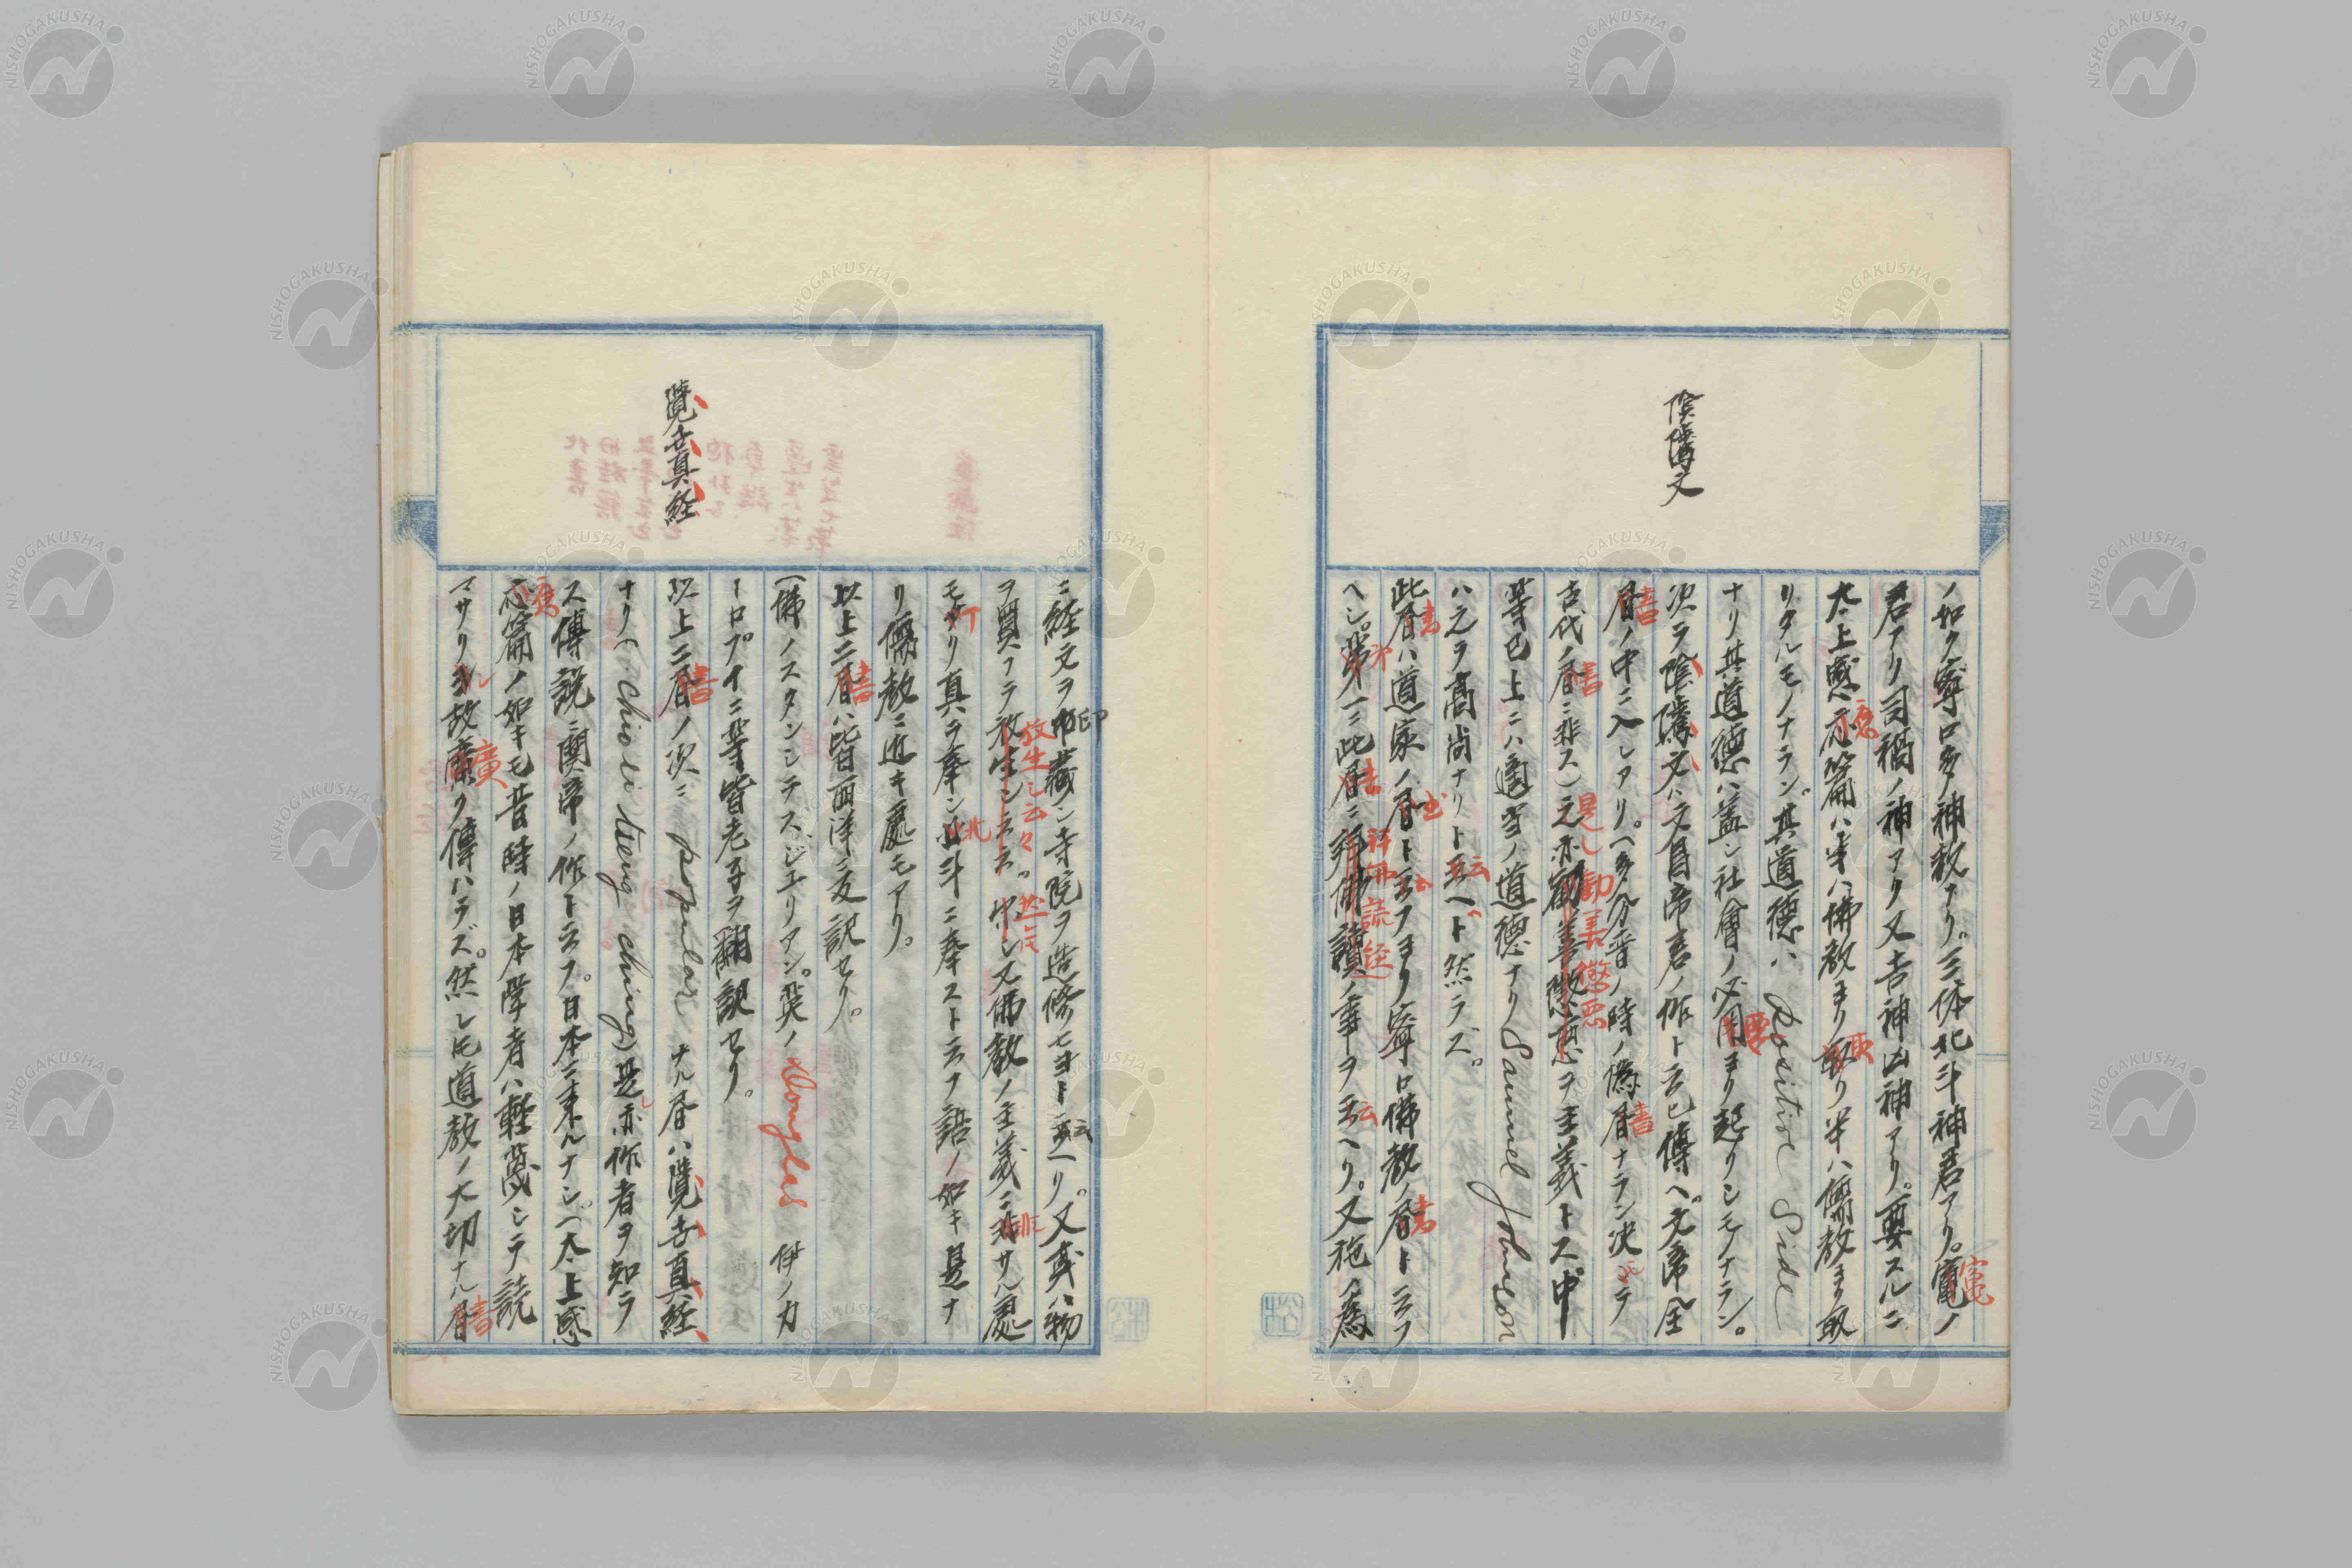 陰隲文
ノ如ク寧ロ多神教ナリ。三体北斗神君アリ。竈ノ
君アリ司禍ノ神アリ又吉神凶神アリ。要スルニ
太上感應篇ハ半ハ佛教ヨリ取リ半ハ儒教ヨリ取
リタルモノナラン。其道徳ハ Positive Side
ナリ其道徳ハ蓋シ社會ノ必要ヨリ起リシモノナラン。
次ヲ陰隲文ハ文昌帝君ノ作ト云ヒ傳ヘ。文帝全
書ノ中ニ入レアリ。(多分晋ノ時ノ偽書ナラン決シテ
古代ノ書ニ非ス)之亦勧善懲悪ヲ主義トス。中
等已上ニハ適當ノ道徳ナリ Samuel Johnson
ハ之ヲ高尚ナリト云ヘド然ラズ。
此書ハ道家ノ書ト云フヨリ寧ロ佛教ノ書ト云フ
ベシ。第一ニ此書ニ拜佛讀経ノ事ヲ云ヘリ。又施ノ為
覺世真経
ニ経文ヲ印藏シ寺院ヲ造修セヨト云ヘリ。又或ハ物
ヲ買フテ放生シ云々。然シ又佛教ノ主義ニ非サル處
モアリ真ヲ奉シ北斗ニ奉スト云フ語ノ如キ是ナ
リ儒教ニ近キ處モアリ。
以上二書ハ皆西洋ニ反訳セリ。
(佛ノスタンシラスジュリアン。英ノ Douglas 伊ノカ
ーロプイニ等皆老子ヲ翻訳セリ。
以上二書ノ次ニ popular ナル書ハ覺世真経
ナリ(Chio li teng ching)是亦作者ヲ知ラ
ス傳説ニ関帝ノ作ト云フ。日本ニ来ルナシ。(太上感
應篇ノ如キモ昔時ノ日本学者ハ軽蔑シテ読
マサリシ故廣ク傳ハラズ。然レ𪜈道教ノ大切ナル書